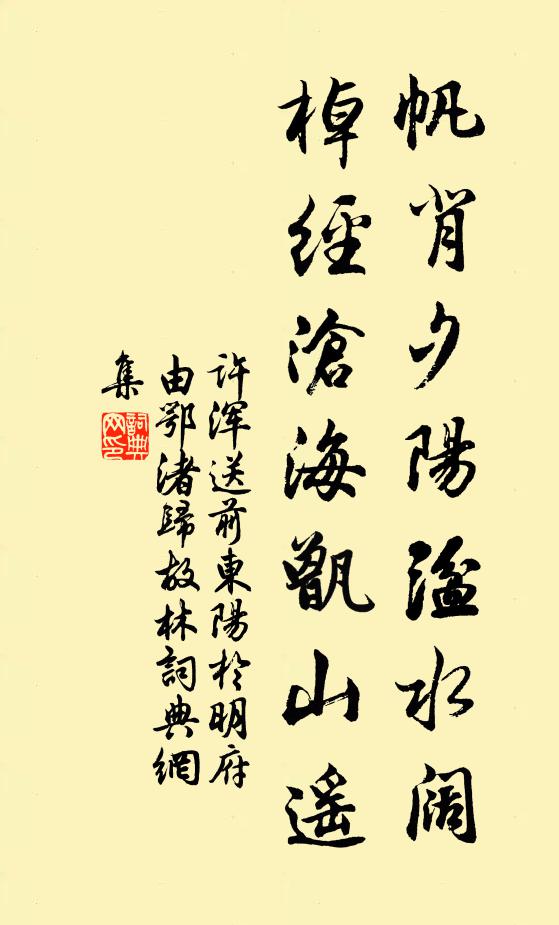 帆背夕陽湓水闊
棹經滄海甑山遥
許渾送前東陽於明府
由鄂渚歸故林詞典網
集
詞典
网印